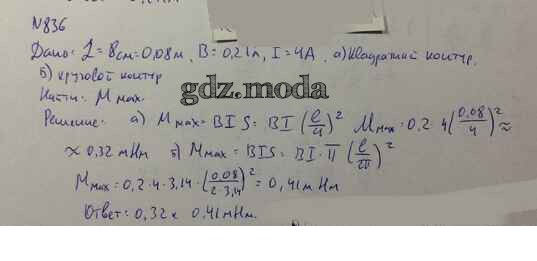 N836
Дано: L = 8см = 0,08м, B = 0,2Тл, I = 4А, а) квадратный контур,
б) круговой контур
gdz.moda
Найти: M max.
Решение: а) M max = BIS = BI (l/4)² M max = 0,2 · 4 (0,08/4)² ≈
≈ 0,32 мНм б) M max = BIS = BI · π (l/2π)²
M max = 0,2 · 4 · 3,14 · (0,08/2·3,14)² = 0,41 мНм
Ответ: 0,32 и 0,41 мНм.